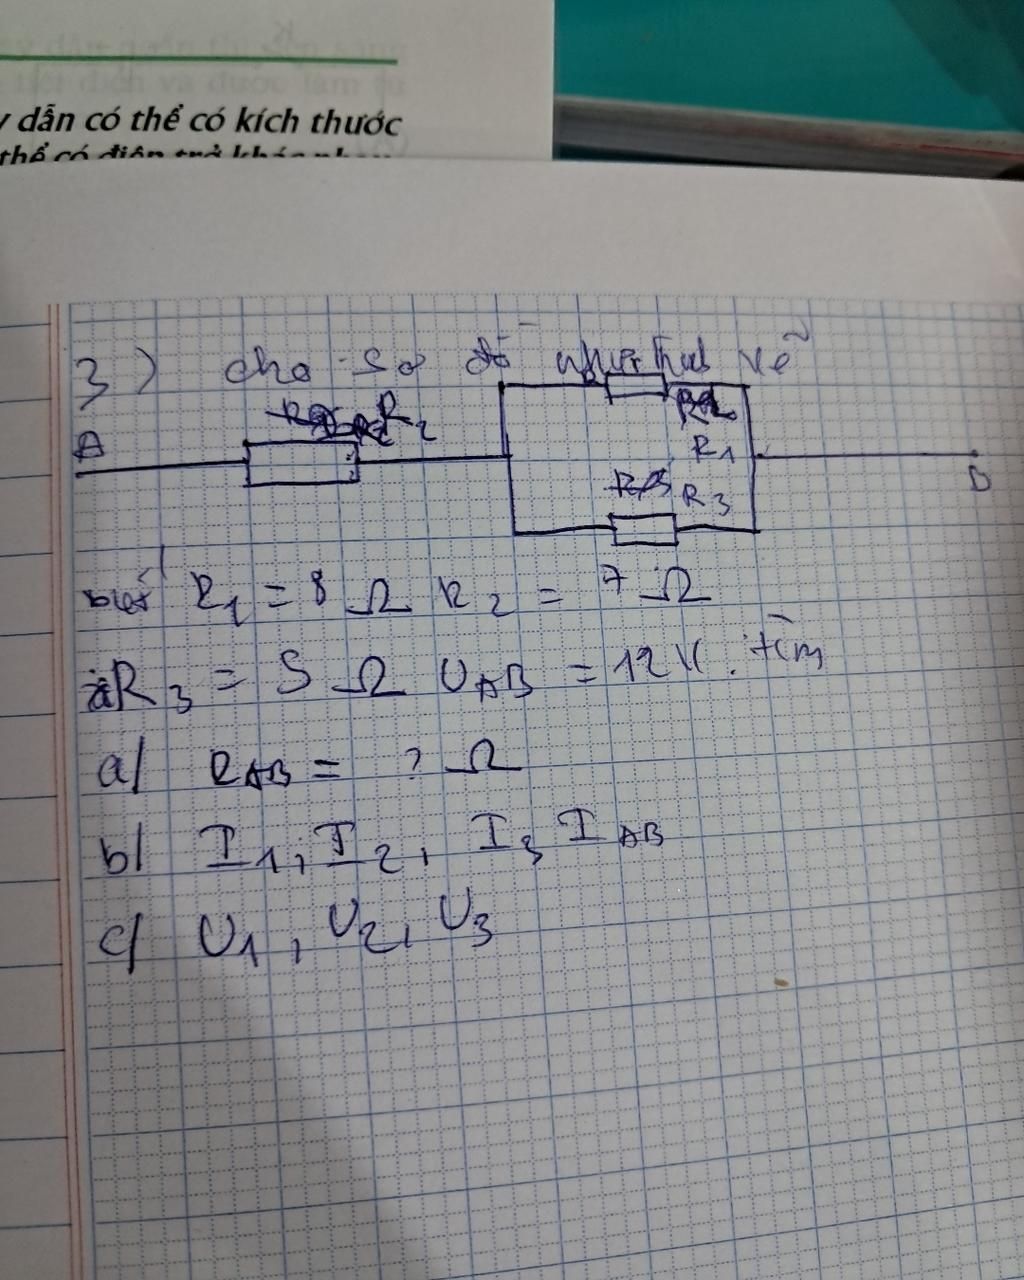 y dẫn có thể có kích thước
thể có điện trở khác nhau
3) cho sơ đồ như hình vẽ
A
R2
R1
R3
B
biết R1 = 8 Ω R2 = 7 Ω
R3 = 5 Ω UAB = 12V. tìm
a/ RAB = ? Ω
b/ I1, I2, I3 IAB
c/ U1, U2, U3